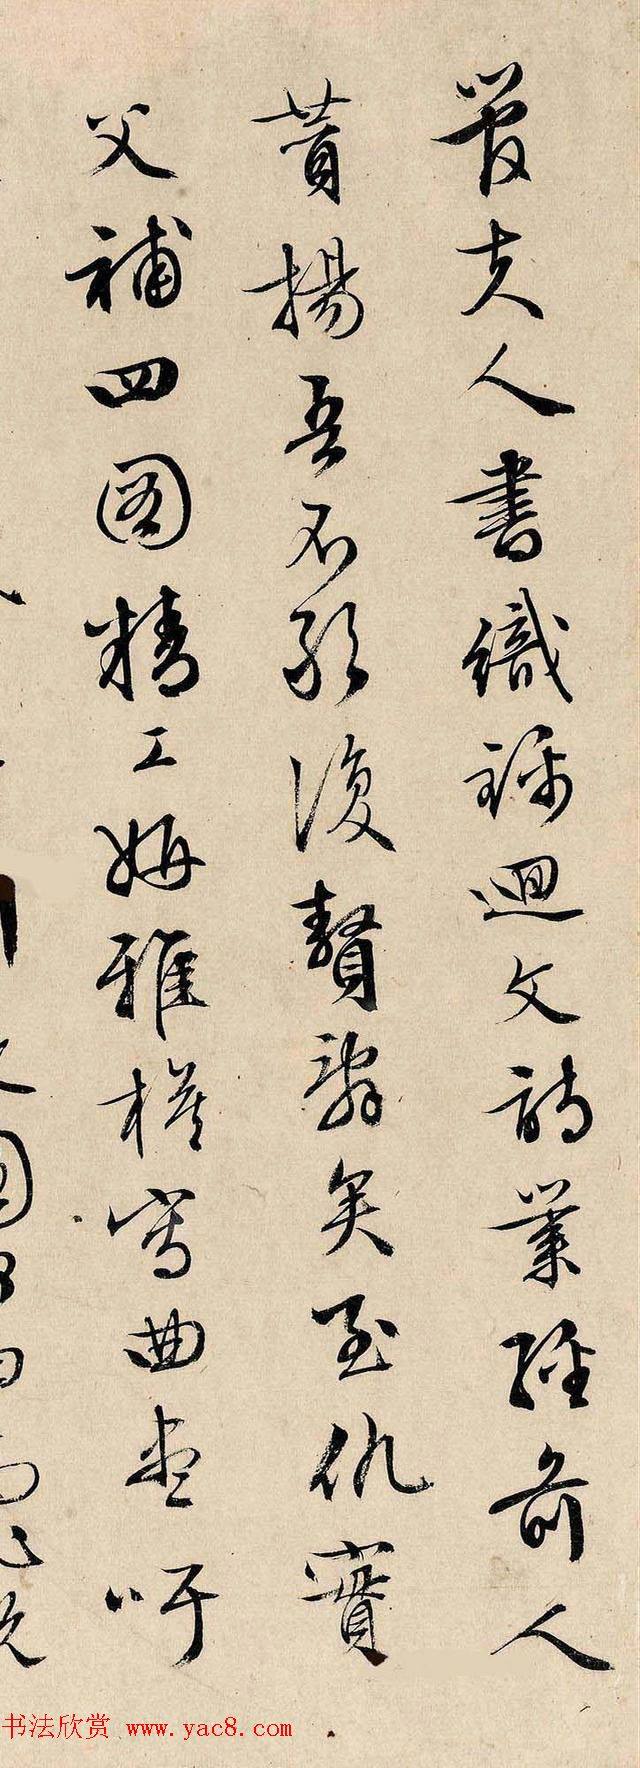 管夫人書織錦迴文詩業經前人
賛揚吾不能復贅辭矣至仇實
父補四图精工妍雅模寫曲盡吁
书法欣赏 www.yac8.com